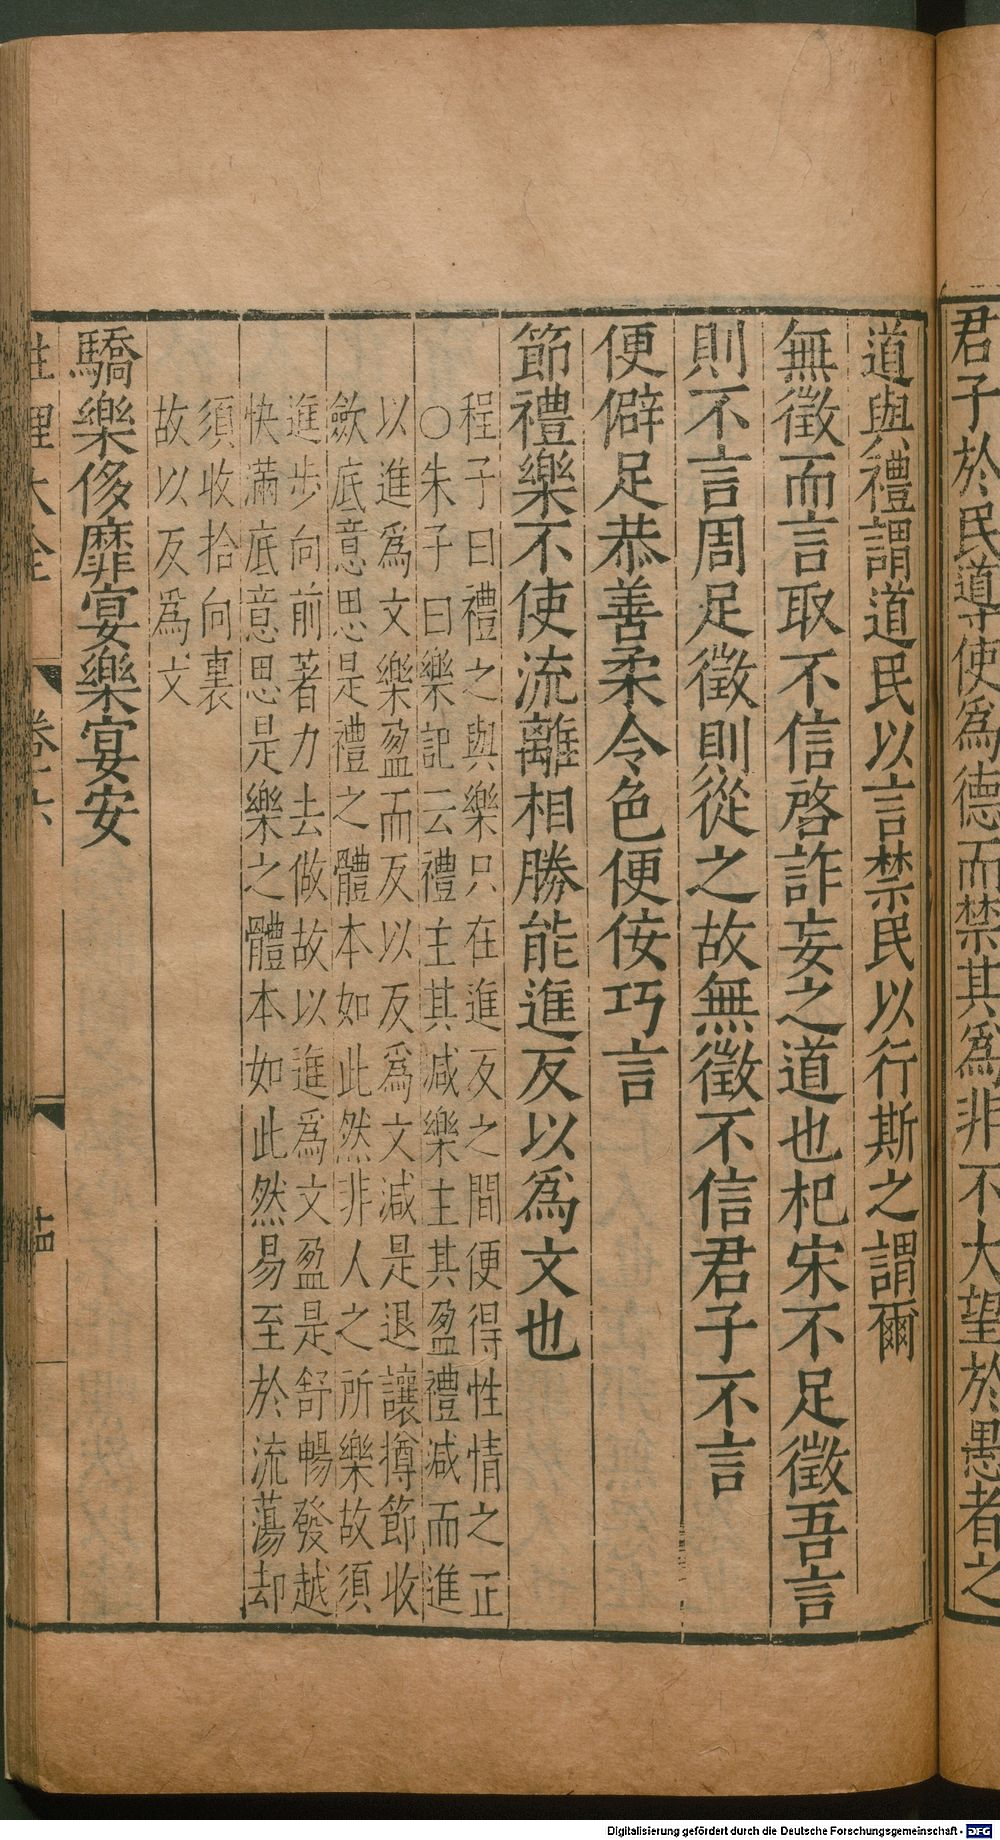 君子於民導使爲德而禁其爲非不大望於愚者之
道與禮謂道民以言禁民以行斯之謂爾
無徵而言取不信啓詐妄之道也杞宋不足徵吾言
則不言周足徵則從之故無徵不信君子不言
便僻足恭善柔令色便佞巧言
節禮樂不使流離相勝能進反以爲文也
程子曰禮之與樂只在進反之間便得性情之正
○朱子曰樂記云禮主其減樂主其盈禮減而進
以進爲文樂盈而反以反爲文減是退讓撙節收
歛底意思是禮之體本如此然非人之所樂故須
進步向前著力去做故以進爲文盈是舒暢發越
快滿底意思是樂之體本如此然易至於流蕩却
須收拾向裏
故以反爲文
驕樂侈靡宴樂宴安
性理大全
卷之六
十四
Digitalisierung gefördert durch die Deutsche Forschungsgemeinschaft - DFG